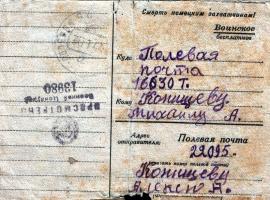 Смерть немецким захватчикам!
Воинское
бесплатное
Куда Полевая
почта
18630 Т.
Кому Конищеву
Михаилу А.
Адрес
отправителя:
Полевая почта
22095.
Конищеву
Алексею А.
ПРОСМОТРЕНО
Военной Цензурой
13980